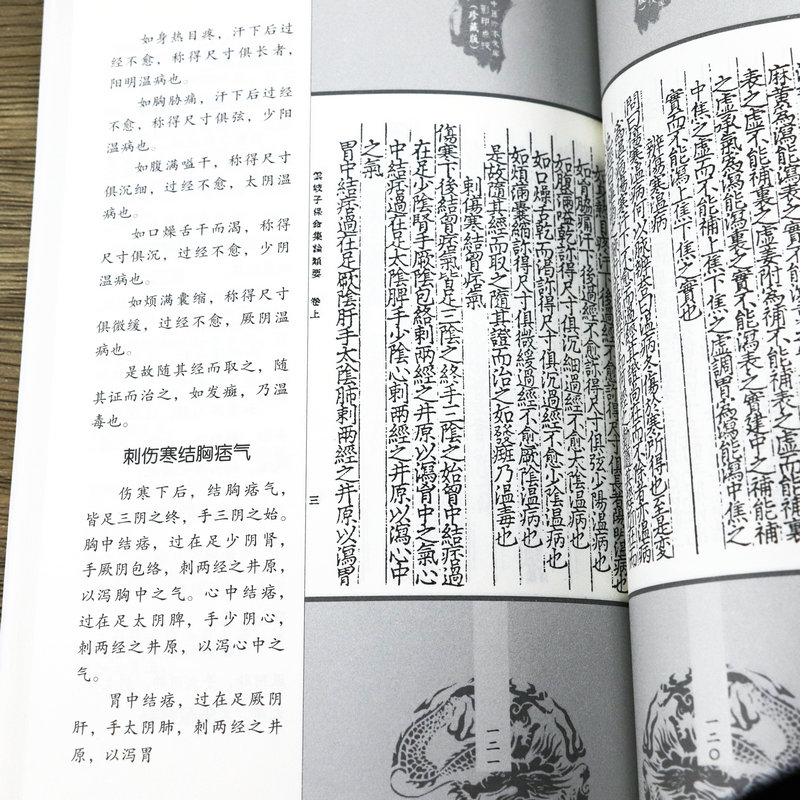 如身热目疼，汗下后过
经不愈，称得尺寸俱长者，
阳明温病也。
如胸胁痛，汗下后过经
不愈，称得尺寸俱弦，少阳
温病也。
如腹满嗌干，称得尺寸
俱沉细，过经不愈，太阴温
病也。
如口燥舌干而渴，称得
尺寸俱沉，过经不愈，少阴
温病也。
如烦满囊缩，称得尺寸
俱微缓，过经不愈，厥阴温
病也。
是故随其经而取之，随
其证而治之，如发癍，乃温
毒也。
刺伤寒结胸痞气
伤寒下后，结胸痞气，
皆足三阴之终，手三阴之始。
胸中结痞，过在足少阴肾，
手厥阴包络，刺两经之井原，
以泻胸中之气。心中结痞，
过在足太阴脾，手少阴心，
刺两经之井原，以泻心中之
气。
胃中结痞，过在足厥阴
肝，手太阴肺，刺两经之井
原，以泻胃
麻黃為瀉能瀉表之實不能瀉裏
表之虛不能補裏之虛
之虛承氣為瀉能瀉裏之實不能瀉表之實建中之補能補
中焦之虛而不能補上焦下焦之虛調胃為瀉能瀉中焦之
實而不能瀉上焦下焦之實也
辨傷寒溫病
如胸脇痛汗下後過經不愈診得尺寸俱弦少陽溫病也
如腹滿嗌乾診得尺寸俱沉細過經不愈太陰溫病也
如口燥舌乾而渴診得尺寸俱沉過經不愈少陰溫病也
如煩滿囊縮診得尺寸俱微緩過經不愈厥陰溫病也
是故隨其經而取之隨其證而治之如發斑乃溫毒也
刺傷寒結胷痞氣
傷寒下後結胷痞氣皆足三陰之終手三陰之始胷中結痞過
在足少陰腎手厥陰包絡刺兩經之井原以瀉胷中之氣心
中結痞過在足太陰脾手少陰心刺兩經之井原以瀉心中
之氣
胃中結痞過在足厥陰肝手太陰肺刺兩經之井原以瀉胃
雲岐子保命集論類要 卷上
三
一二一
一二〇